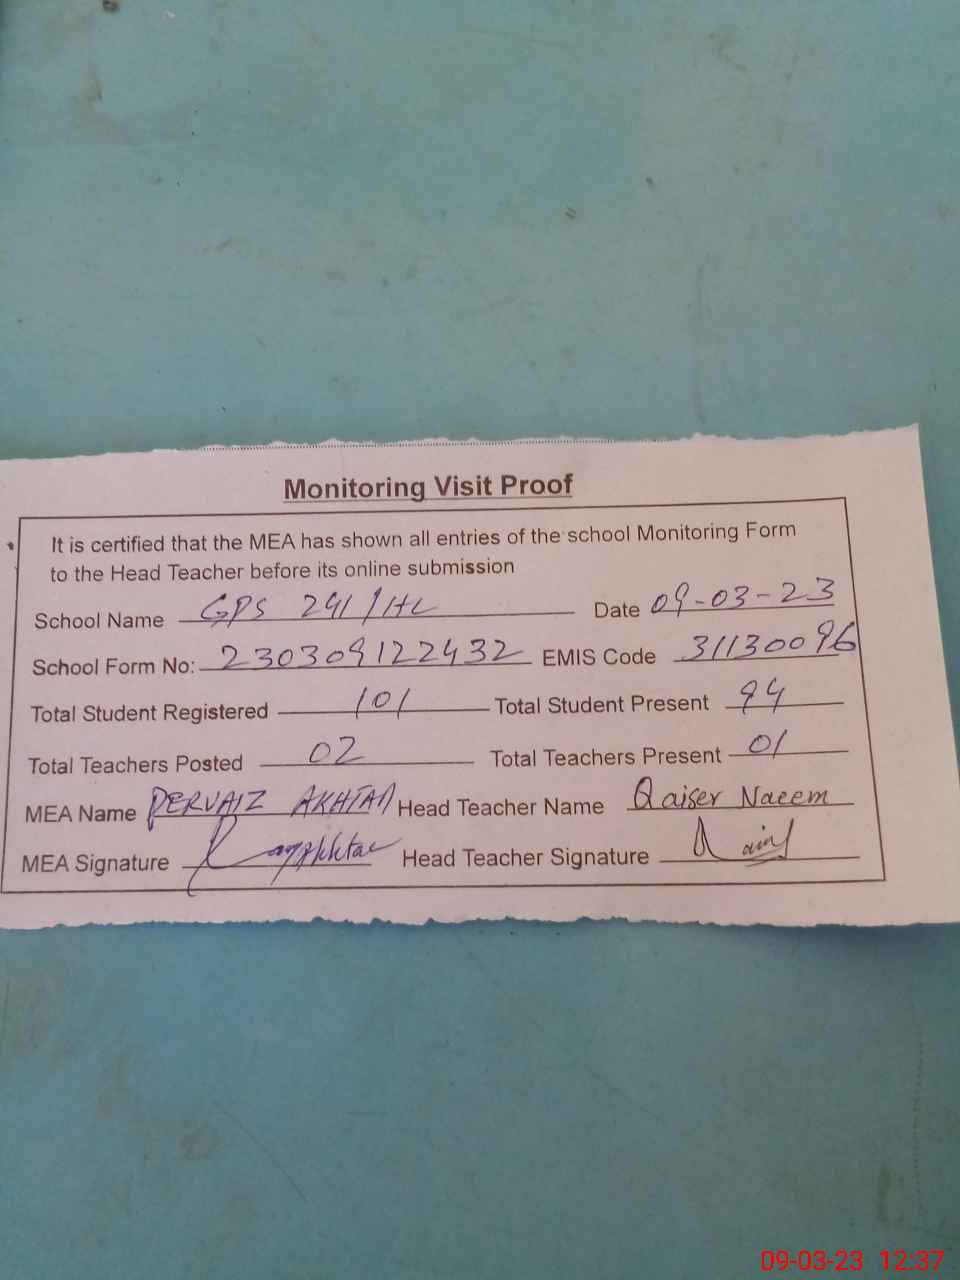 Monitoring Visit Proof
It is certified that the MEA has shown all entries of the school Monitoring Form
to the Head Teacher before its online submission
School Name GPS 241/HL Date 09-03-23
School Form No: 230309122432 EMIS Code 31130096
Total Student Registered 101 Total Student Present 94
Total Teachers Posted 02 Total Teachers Present 01
MEA Name PERVAIZ AKHTAR Head Teacher Name Qaiser Naeem
MEA Signature Head Teacher Signature
09-03-23 12:37